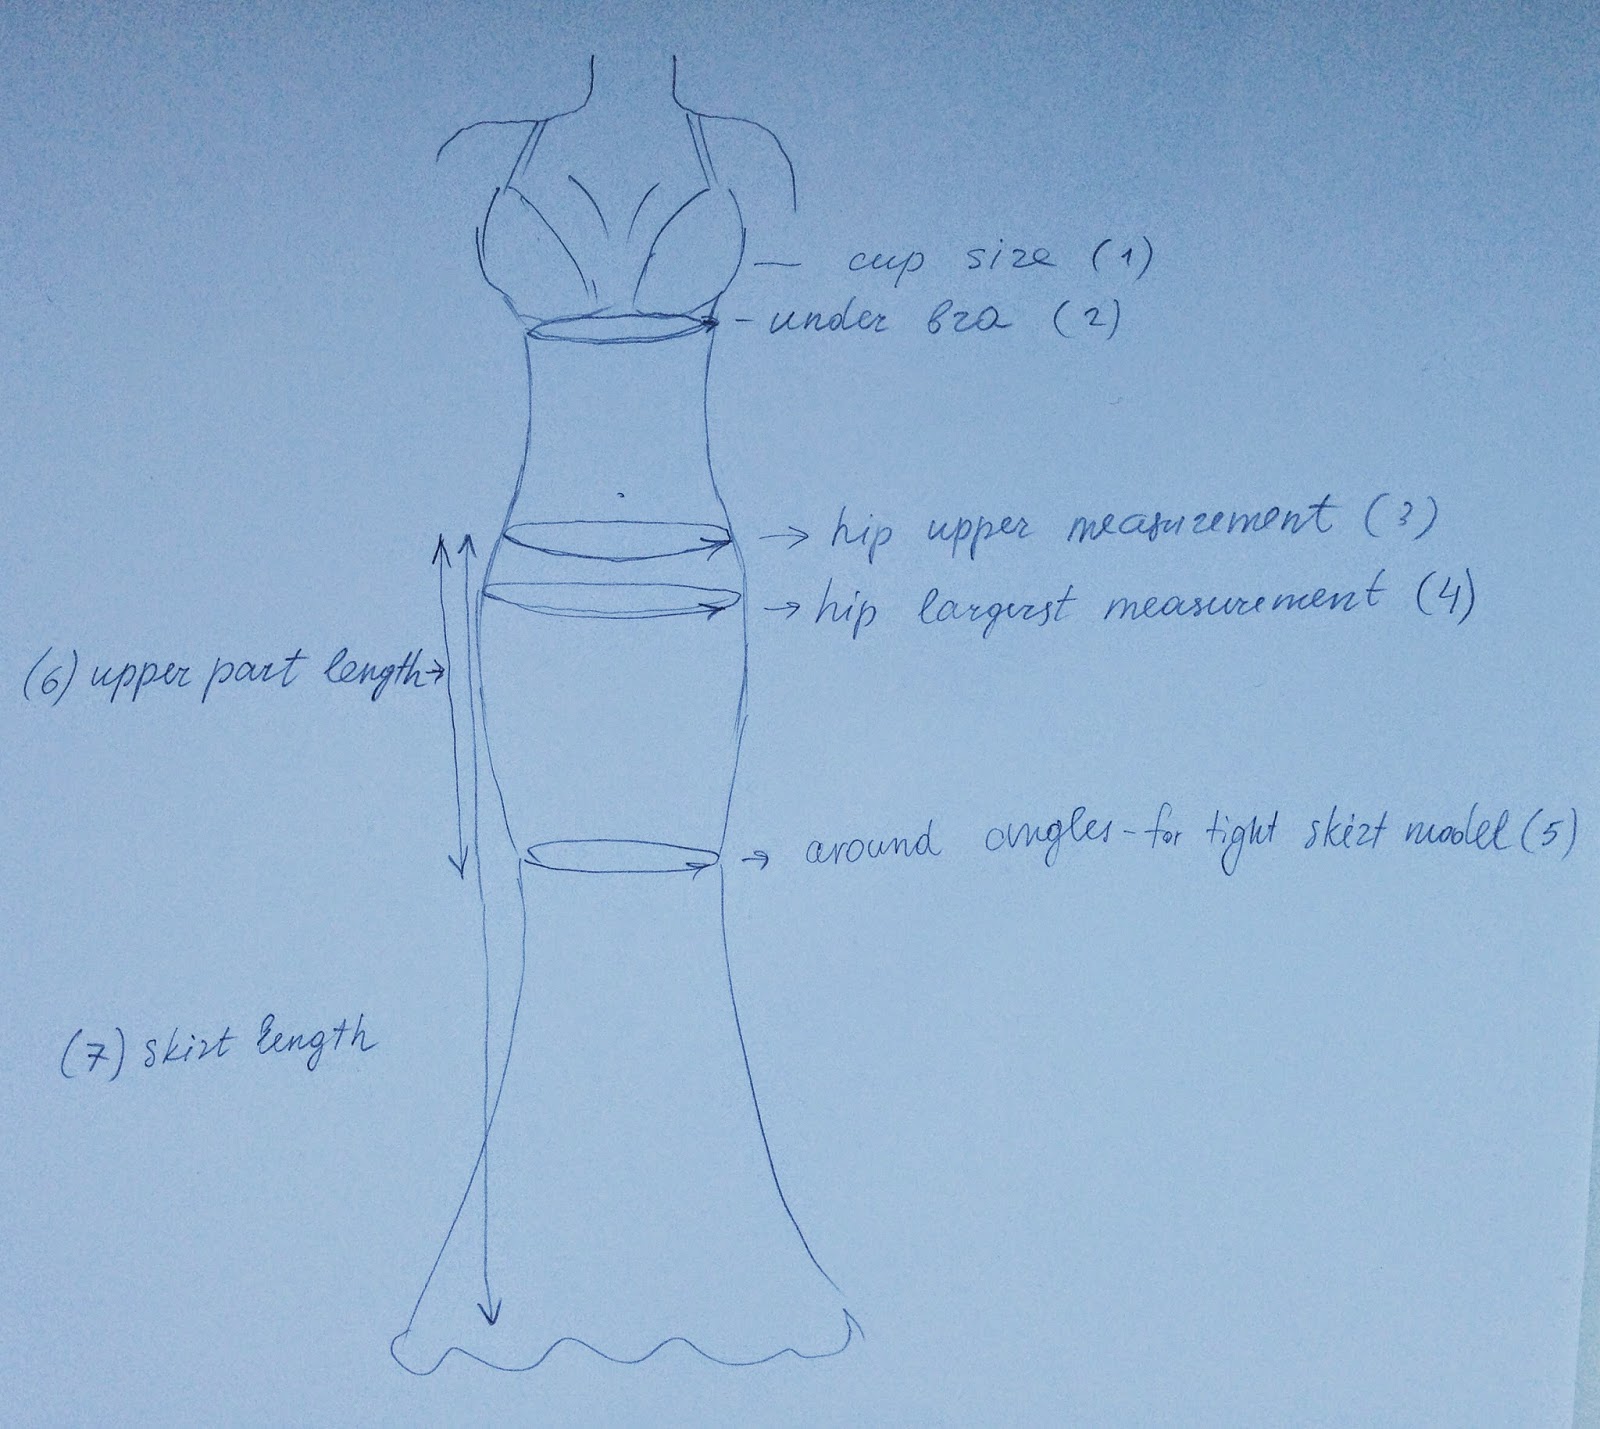 cup size (1)
- under bra (2)
→ hip upper measurement (3)
→ hip largerst measurement (4)
(6) upper part length→
→ around angles - for tight skirt model (5)
(7) skirt length